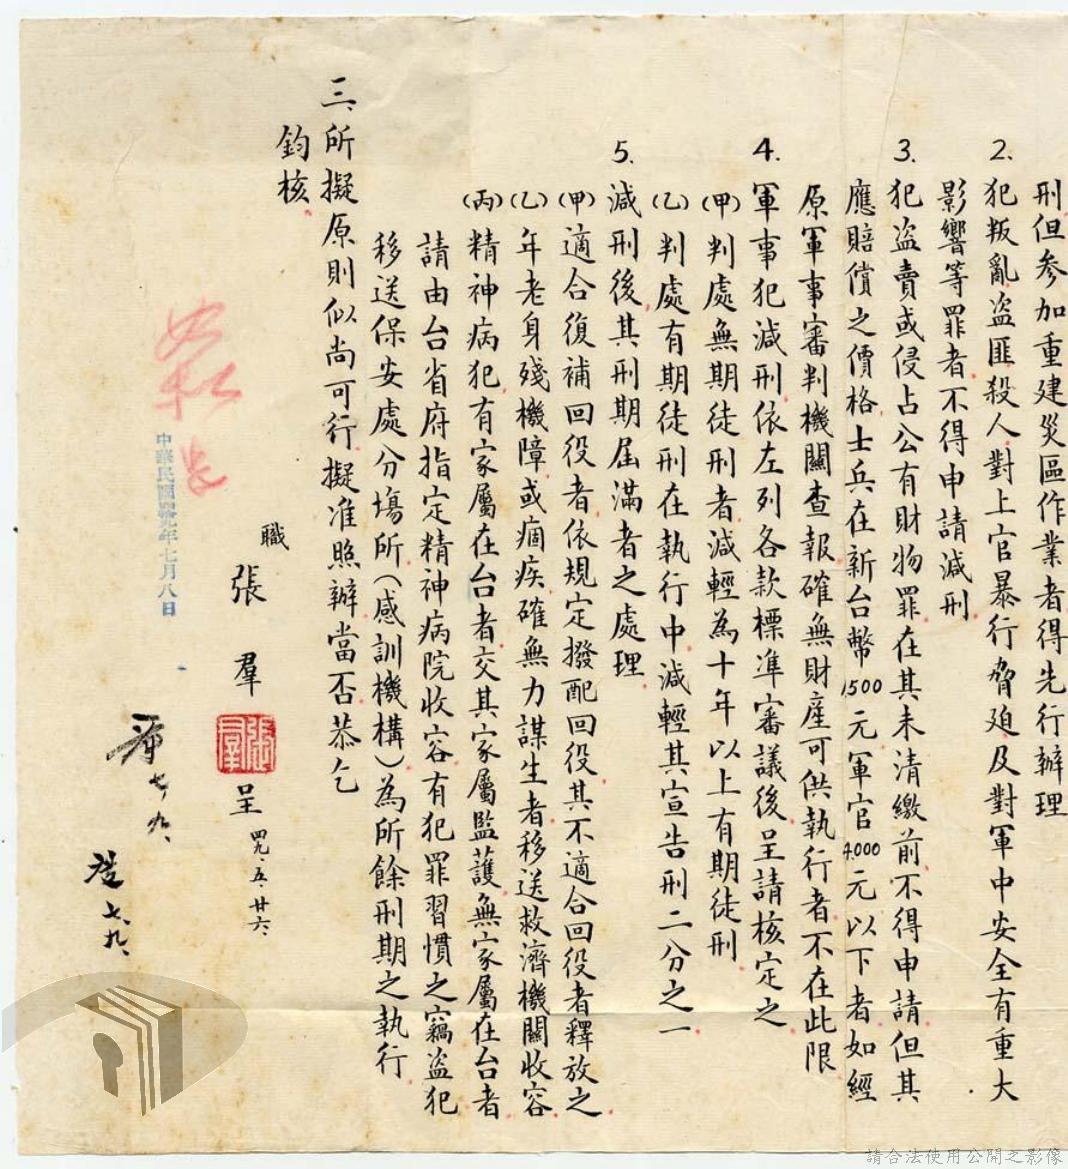 刑但參加重建災區作業者得先行辦理
2.犯叛亂盜匪殺人對上官暴行脅廹及對軍中安全有重大
影響等罪者不得申請減刑
3.犯盜賣或侵占公有財物罪在其未清繳前不得申請但其
應賠償之價格士兵在新台幣1500元軍官4000元以下者如經
原軍事審判機關查報確無財產可供執行者不在此限
4.軍事犯減刑依左列各款標準審議後呈請核定之
(甲)判處無期徒刑者減輕為十年以上有期徒刑
(乙)判處有期徒刑在執行中減輕其宣告刑二分之一
5.減刑後其刑期屆滿者之處理
(甲)適合復補回役者依規定撥配回役其不適合回役者釋放之
(乙)年老身殘機障或痼疾確無力謀生者移送救濟機關收容
(丙)精神病犯有家屬在台者交其家屬監護無家屬在台者
請由台省府指定精神病院收容有犯罪習慣之竊盜犯
移送保安處分場所(感訓機構)為所餘刑期之執行
三、所擬原則似尚可行擬准照辦當否恭乞
鈞核
職張羣呈四九、五、廿六、
張羣
如擬
中華民國四十九年七月八日
七、九、
七、九、
請合法使用公開之影像